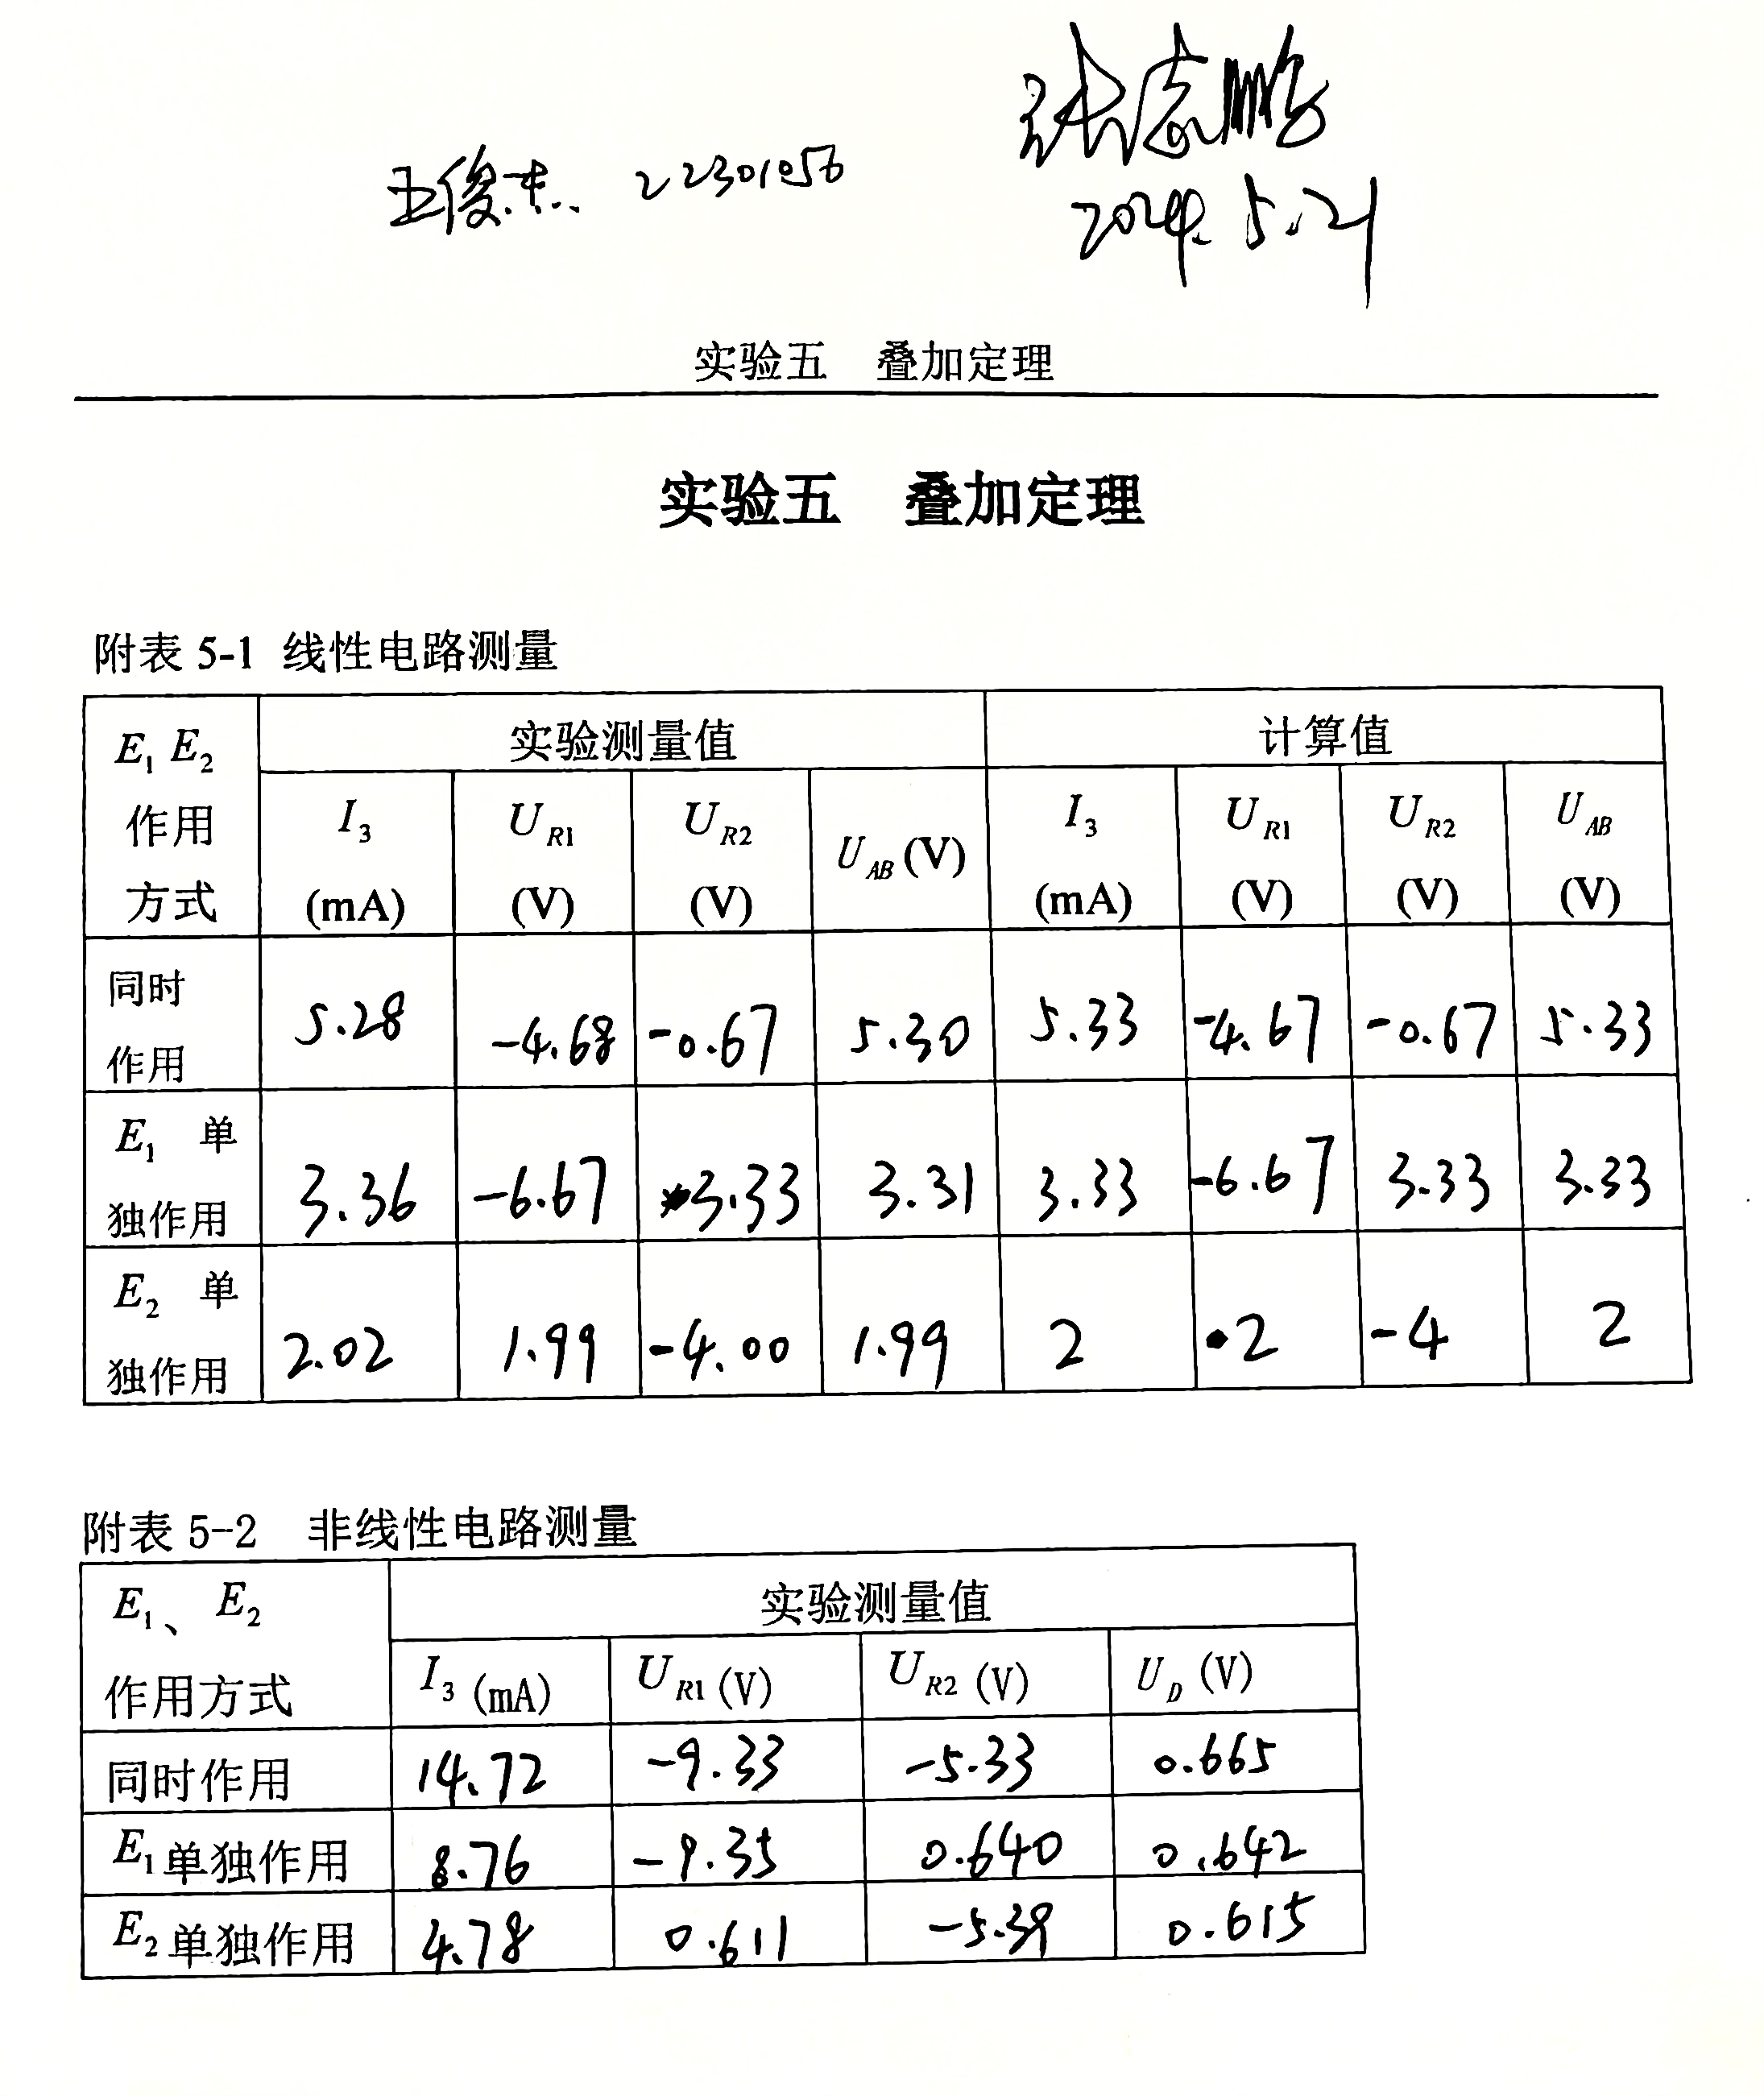 张志鹏
王俊杰 22301056
2024.5.21
实验五 叠加定理
实验五 叠加定理
附表 5-1 线性电路测量
E1 E2 作用方式 实验测量值 计算值
I3 (mA) UR1 (V) UR2 (V) UAB (V) I3 (mA) UR1 (V) UR2 (V) UAB (V)
同时作用 5.28 -4.68 -0.67 5.30 5.33 -4.67 -0.67 5.33
E1 单独作用 3.36 -6.67 3.33 3.31 3.33 -6.67 3.33 3.33
E2 单独作用 2.02 1.99 -4.00 1.99 2 2 -4 2
附表 5-2 非线性电路测量
E1、E2 作用方式 实验测量值
I3 (mA) UR1 (V) UR2 (V) UD (V)
同时作用 14.72 -9.33 -5.33 0.665
E1单独作用 8.76 -9.35 0.640 0.642
E2单独作用 4.78 0.611 -5.39 0.615